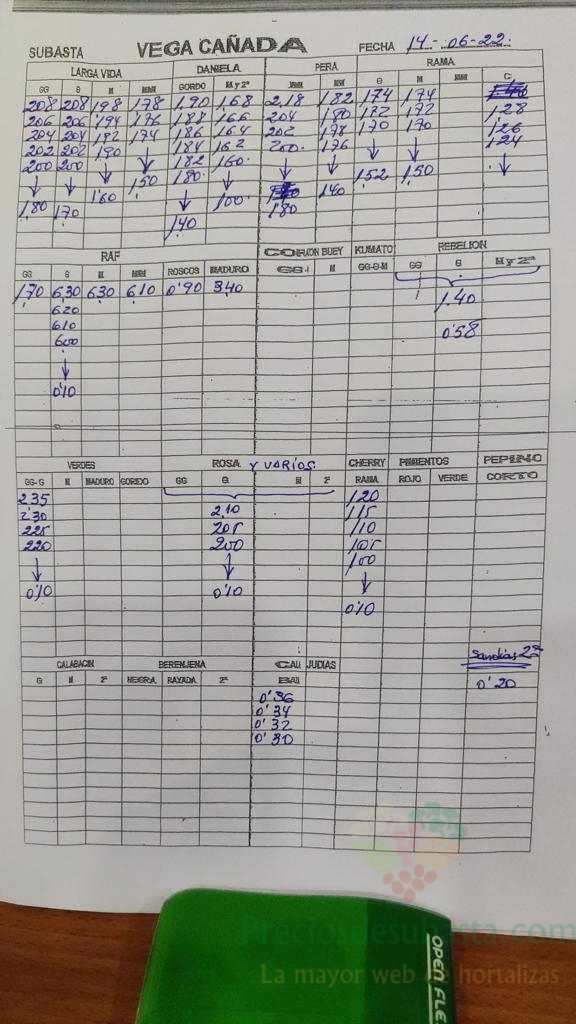 SUBASTA VEGA CAÑADA FECHA 14-06-22
LARGA VIDA DANIELA PERA RAMA
GG G M MMM GORDO M y 2ª MMM G M MMM C
208 208 198 178 1,90 1,68 2,18 182 174 174
206 206 194 176 188 166 204 180 172 172 1,28
204 204 192 174 186 164 202 178 170 170 126
202 202 190 184 162 200 176 124
200 200 182 160
150 180 152 1,50
160 100 140
1,80 170 180
140
RAF CORAZON BUEY KUMATO REBELION
GG G M MMM ROSCOS MADURO GG M GG-G-M GG G M y 2ª
1,70 6,30 6,30 6,10 0'90 3,40 1.40
620
610 0'58
600
0'10
VERDES ROSA y VARIOS CHERRY PIMIENTOS PEPINO
GG-G M MADURO GORDO GG G M 2ª RAMA ROJO VERDE CORTO
235 120
2'30 2,10 115
225 205 110
220 200 105
100
0'10 0'10
0'10
Sandías 2ª
CALABACIN BERENJENA JUDIAS
G M 2ª NEGRA RAYADA 2ª 0'20
0'36
0'34
0'32
0'30
Preciosdesubasta.com
La mayor web de hortalizas
OPEN FLE